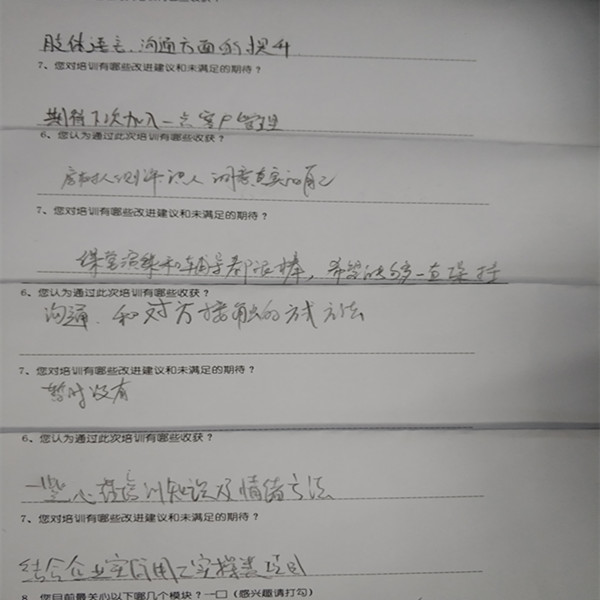 肢体语言、沟通方面的提升
7、您对培训有哪些改进建议和未满足的期待？
期待下次加入一点客户管理
6、您认为通过此次培训有哪些收获？
识人 洞察真实的自己
7、您对培训有哪些改进建议和未满足的期待？
课堂演练和辅导都很棒，希望能够一直保持
6、您认为通过此次培训有哪些收获？
沟通、和对方接触的方式方法
7、您对培训有哪些改进建议和未满足的期待？
暂时没有
6、您认为通过此次培训有哪些收获？
一些心理培训知识及情绪方法
7、您对培训有哪些改进建议和未满足的期待？
结合企业实际用工实操类项目
8、您目前最关心以下哪几个模块？一口（感兴趣请打勾）